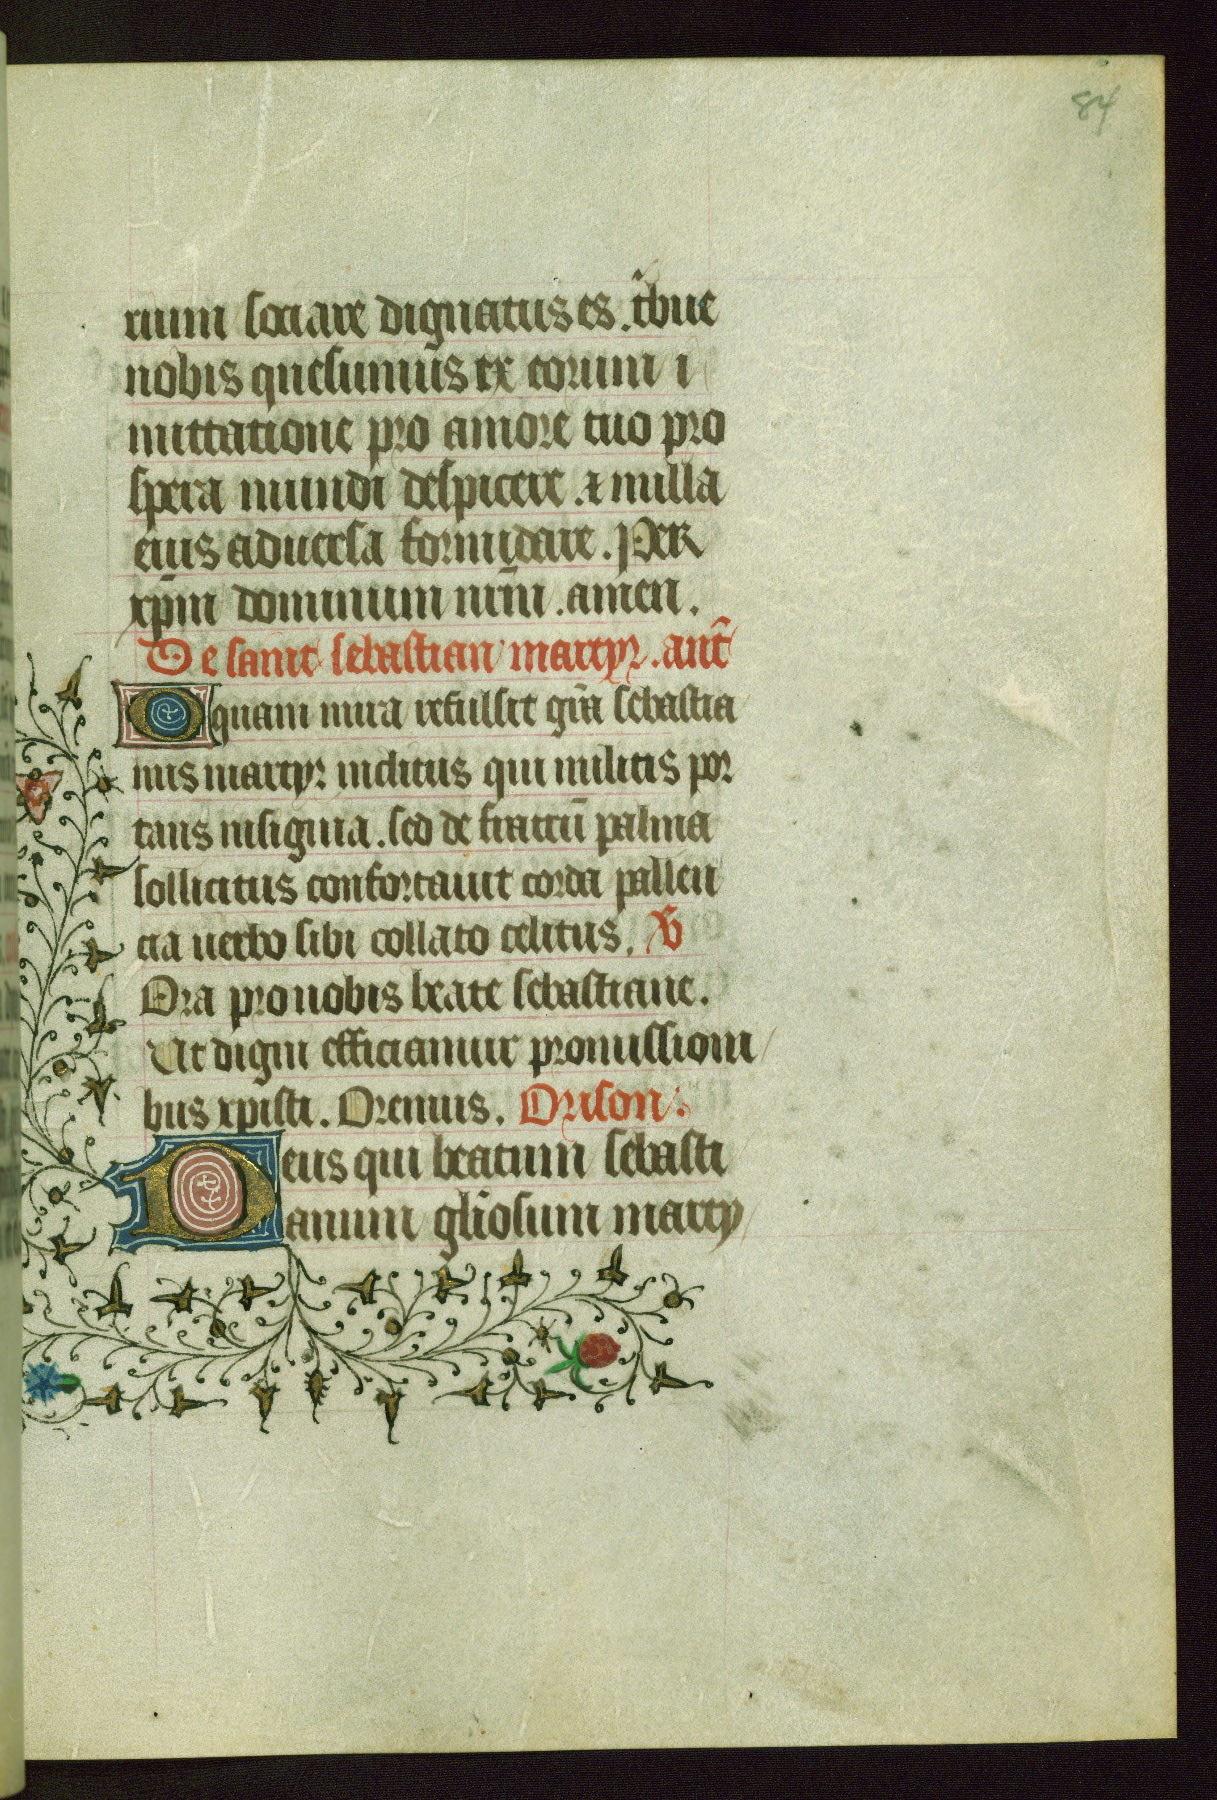 84
rium sociare dignatus es. t̃bue
nobis quesumus ex eorum i
mittatione pro amore tuo pro
spera mundi despicere. ⁊ nulla
eius aduersa formidare. Per
xp̄m dominum nr̄m. amen.
De saint sebastian martyr. ant̃
O quam mira refulsit gr̄a sebastia
nus martyr inclitus qui militis por
tans insignia. sed de fratrū palma
sollicitus confortauit corda pallen
cia uerbo sibi collato celitus. ℣
Ora pro nobis beate sebastiane.
Ut digni efficiamur promissioni
bus xpisti. Oremus. Orison.
Deus qui beatum sebasti
anum gl̄iosum marty